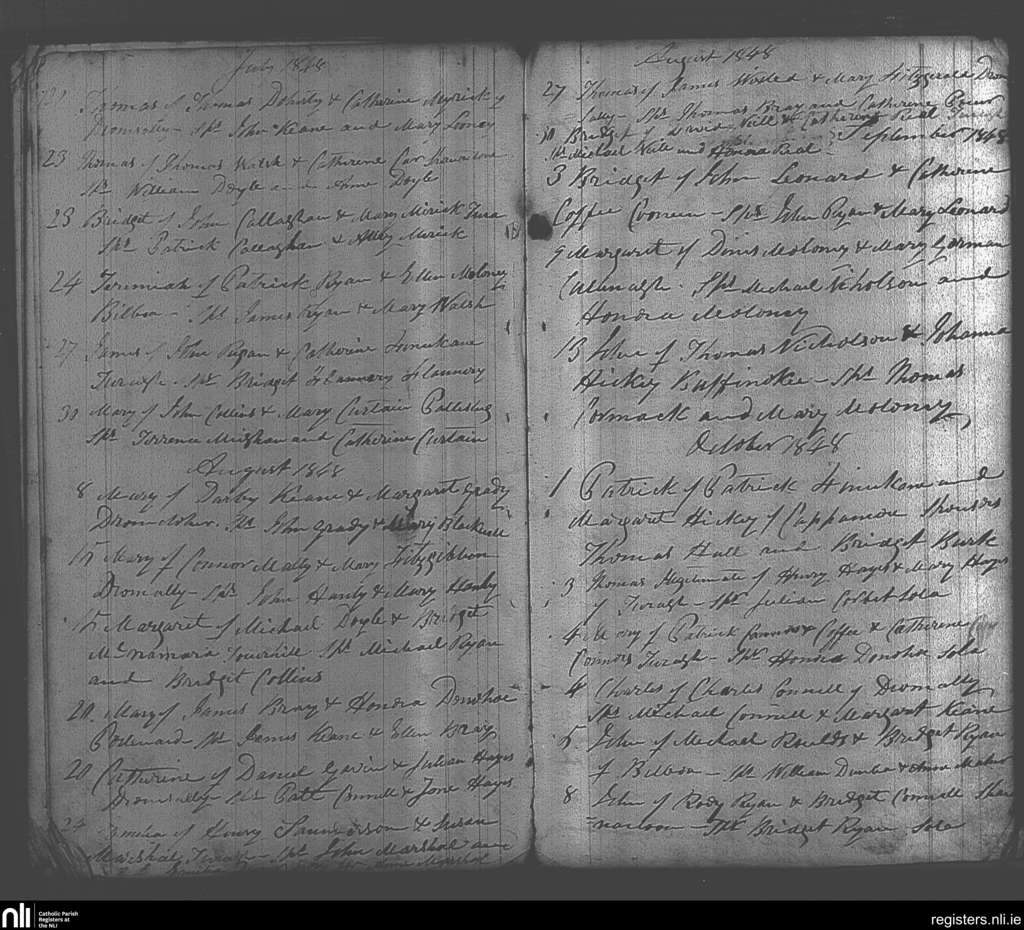 July 1848
Thomas of Thomas Doherty & Catherine Meyrick
Dromsally - Sps John Keane and Mary Looney
23 Thomas of Thomas Walsh & Catherine
Sps William Doyle and Anne Doyle
23 Bridget of John Callaghan & Mary Mirick
Sps Patrick Callaghan & Mirick
24 Jerimiah of Patrick Ryan & Ellen Moloney
Bilboa - Sps James Ryan & Mary Walsh
27 James of John Ryan & Catherine Finnukane
Turagh - Sps Bridget Flannery
30 Mary of John Collins & Mary Curtain
Sps Terrence Meighan and Catherine Curtain
August 1848
8 Mary of Darby Keane & Margaret Grady
Dromcloher. Sps John Grady & Mary Blackwell
15 Mary of Connor Mally & Mary Fitzgibbon
Dromally - Sps John Hanly & Mary Hanly
15 Margaret of Michael Doyle & Bridget
McNamara Sps Michael Ryan
and Bridget Collins
20. Mary of James Bray & Honora Donohoe
Sps James Keane & Ellen Bray
20 Catherine of Daniel Gavin & Julian Hayes
Dromsally - Sps Patt Connell & Jone Hayes
24 of Henry & Susan
Marshal Turagh - Sps John Marshal and
August 1848
27 Thomas of James & Mary Fitzgerald Drom
sally - Sps Thomas Bray and Catherine
30 Bridget of David & Catherine Real
Sps Michael and Honora Real
September 1848
3 Bridget of John Leonard & Catherine
Coffee Cooneen - Sps John Ryan & Mary Leonard
9 Margaret of Dinis Molony & Mary Gorman
Cumnagh. Sps Michael Nicholson and
Honora Molony
13 of Thomas Nicholson & Johanna
Hickey Buffinokee - Sps Thomas
Cormack and Mary Molony
October 1848
1 Patrick of Patrick Finukane and
Margaret Hickey of Cappamore Sponsors
Thomas Hall and Bridget Burk
3 Thomas Illegitimate of Henry Hayes & Mary Hayes
of Turagh - Sps Julian Corbet Sola
4 Mary of Patrick Coffee & Catherine
Connors Turagh - Sps Honora Donohoe Sola
4 Charles of Charles Connell of Dromally
Sps Michael Connell & Margaret Keane
5 John of Michael & Bridget Ryan
of Bilboa - Sps William & Anne
8 John of Rody Ryan & Bridget Connell
Sps Bridget Ryan Sola
nli
Catholic Parish
Registers at
the NLI
registers.nli.ie